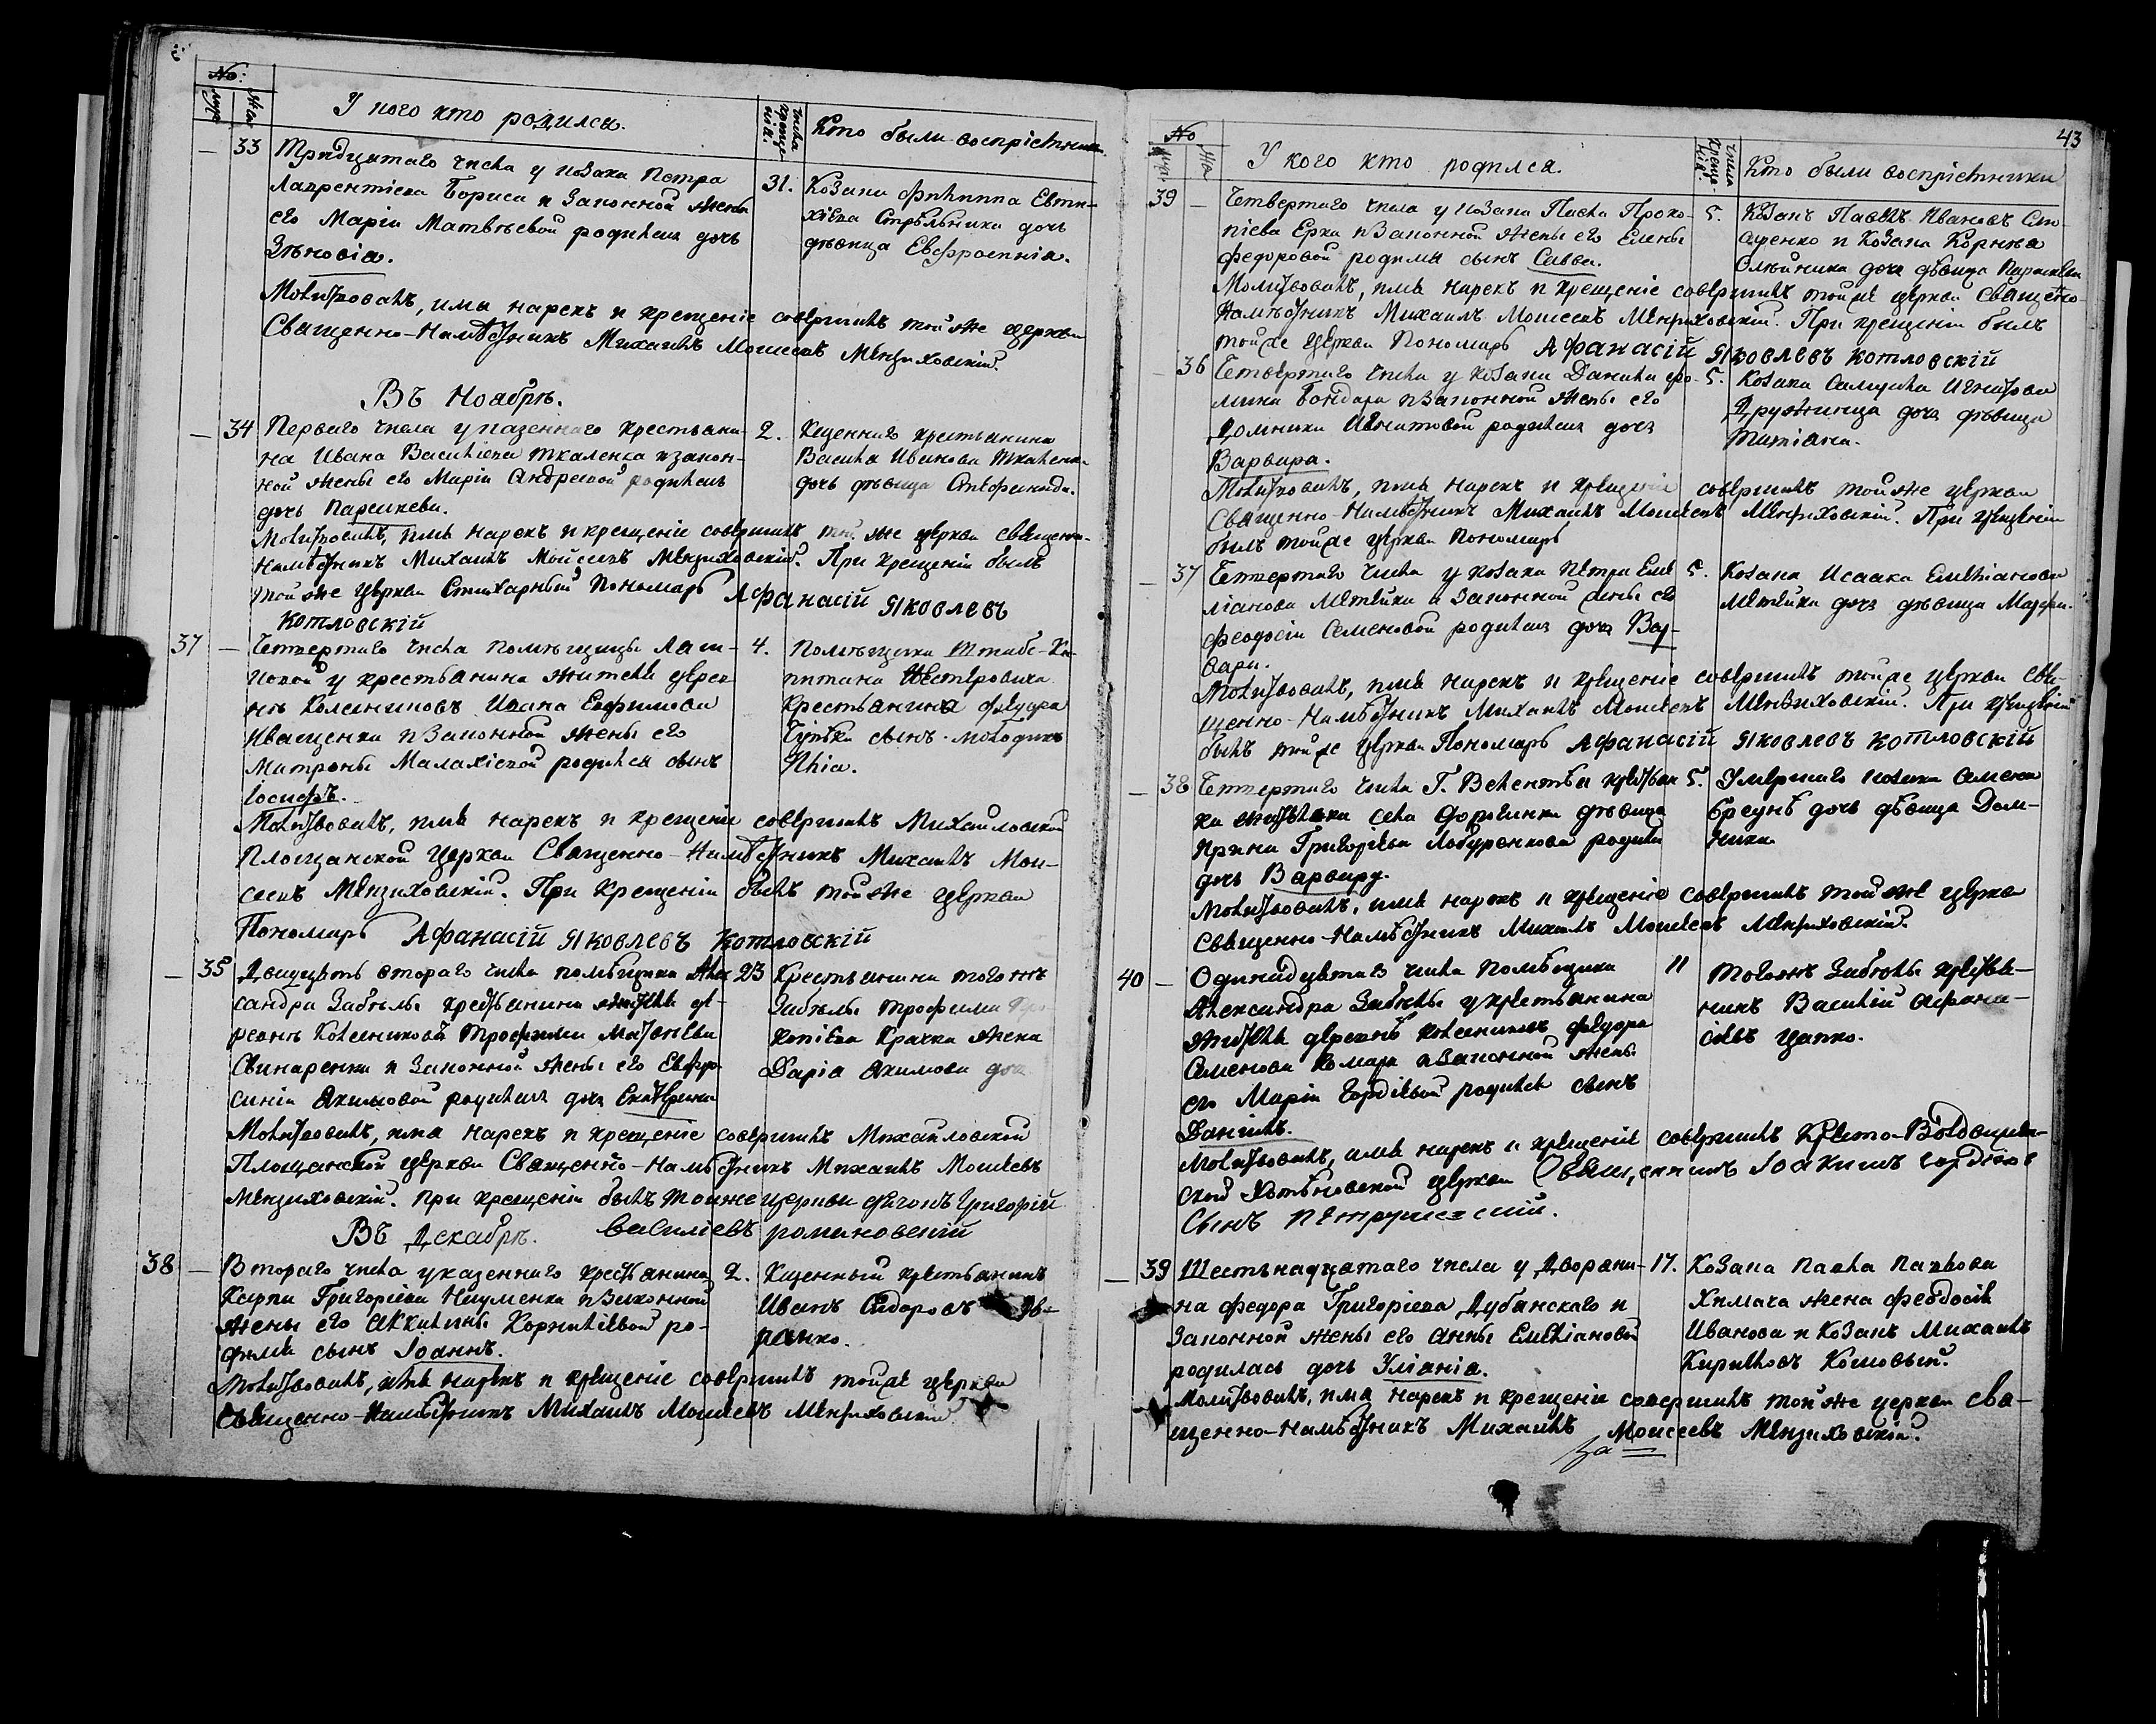 No:
муж
жен
У кого кто родился.
числа крещенія.
Кто были воспріемники.
33 Тридцатаго числа у козака Петра
Лаврентіева Бориса и законной жены
его Маріи Матвѣевой родилась дочь
Зѣновія.
31. Козака Филиппа Евти-
хіева Стрѣльника дочь
дѣвица Евфросинія.
Молитвовалъ, имя нарекъ и крещеніе совершилъ той же церкви
Священно-Намѣстникъ Михаилъ Моисеевъ Мензиховскій.
Въ Ноабрѣ.
34 Перваго числа у казеннаго крестьани-
на Ивана Василіева Ткаленка и закон-
ной жены его Маріи Андреевой родилась
дочь Параскева.
2. Казеннаго крестьанина
Василя Иванова Ткаленка
дочь дѣвица Стефанида.
Молитвовалъ, имя нарекъ и крещеніе совершилъ той же церкви Священно-
Намѣстникъ Михаилъ Мойсеевъ Мензиховскій. При крещеніи былъ
той же церкви Стихарный Пономарь Афанасій Яковлевъ
Котловскій
37 Четвертаго числа помѣщицы
у крестьанина жителя дерев
нѣ Колесниковъ Ивана Евфимова
Иващенка и законной жены его
Матроны Малахіевой родился сынъ
Іосифъ.
4. Помѣщика Штабъ-Ка-
питана Нестеровича
крестьанина Федора
сынъ молодикъ
Илія.
Молитвовалъ, имя нарекъ и крещеніе совершилъ Михайловской
Площанской церкви Священно-Намѣстникъ Михаилъ Мои-
сеевъ Мензиховскій. При крещеніи былъ той же церкви
Пономарь Афанасій Яковлевъ Котловскій
35 Двадцать втораго числа помѣщика Алек
сандра Забѣлы крестьанина жителя де-
ревнѣ Колесниковъ Трофима Матвѣева
Свинаренка и законной жены его Евфро
синіи Акимовой родилась дочь Екатерина
23 Крестьанина того жъ
Забѣлы Трофима Про
копіева Крачка жена
Дарія Акимова дочь
Молитвовалъ, имя нарекъ и крещеніе совершилъ Михайловской
Площанской церкви Священно-Намѣстникъ Михаилъ Моисеевъ
Мензиховскій. При крещеніи былъ тойже церкви дячокъ Григорій
Василіевъ Романовскій
Въ Декабрѣ.
38 Втораго числа у казеннаго крестьанина
Карпа Григоріева Науменка и законной
жены его Акилины Корниліевой ро-
дился сынъ Іоаннъ.
2. Казенный крестьанинъ
Иванъ Сидоровъ
Молитвовалъ, имя нарекъ и крещеніе совершилъ той же церкви
Священно-Намѣстникъ Михаилъ Моисеевъ Мензиховскій.
43
No
муж
жен
У кого кто родился.
числа крещенія.
Кто были воспріемники
39 Четвертаго числа у козака Павла Проко-
піева Ерка и законной жены его Елены
Федоровой родился сынъ Савва.
5. Козакъ Павелъ Ивановъ Сто
ляренко и козака Корнѣя
Олѣйника дочь дѣвица Параскева
Молитвовалъ, имя нарекъ и крещеніе совершилъ той же церкви Священно
Намѣстникъ Михаилъ Моисеевъ Мензиховскій. При крещеніи былъ
той же церкви Пономарь Афанасій Яковлевъ Котловскій
36 Четвертаго числа у козака Данила Фо-
мина Бондара и законной жены его
Домники Игнатовой родилась дочь
Варвара.
5. Козака Самуила Игнатова
Дружинца дочь дѣвица
Татіана.
Молитвовалъ, имя нарекъ и крещеніе совершилъ той же церкви
Священно-Намѣстникъ Михаилъ Моисеевъ Мензиховскій. При крещеніи
былъ той же церкви Пономарь
37 Четвертаго числа у козака Петра Еме
ліанова Метейка и законной жены его
Феодосіи Семеновой родилась дочь Вар-
вара.
5. Козака Исаака Емеліанова
Метейка дочь дѣвица Марфа.
Молитвовалъ, имя нарекъ и крещеніе совершилъ той же церкви Свя-
щенно-Намѣстникъ Михаилъ Моисеевъ Мензиховскій. При крещеніи
былъ той же церкви Пономарь Афанасій Яковлевъ Котловскій
38 Четвертаго числа Г. крестьан
ка жителка села дѣвица
Ирина Григоріева родила
дочь Варвару.
5. Умершаго козака Семена
дочь дѣвица Дом-
ника
Молитвовалъ, имя нарекъ и крещеніе совершилъ той же церкви
Священно-Намѣстникъ Михаилъ Моисеевъ Мензиховскій.
40 Одинадцатаго числа помѣщика
Александра Забѣлы у крестьанина
жителя деревнѣ Колесниковъ Федора
Семенова Комара и законной жены
его Маріи Гордѣевой родился сынъ
Даніилъ.
11 Тогожъ Забѣлы крестьа-
нинъ Василій Афана-
сіевъ Цапко.
Молитвовалъ, имя нарекъ и крещеніе совершилъ Кресто-Воздвижен-
ской церкви Священникъ Іоакимъ Гордѣевъ
Сынъ Петрушевскій.
39 Шестьнадцатаго числа у Дворани-
на Федора Григоріева Дубанскаго и
законной жены его Анны Емеліановой
родилась дочь Уліанія.
17. Козака Павла Павлова
Химача жена Феодосія
Иванова и козакъ Михаилъ
Кириловъ Кошовый.
Молитвовалъ, имя нарекъ и крещеніе совершилъ той же церкви Свя-
щенно-Намѣстникъ Михаилъ Моисеевъ Мензиховскій.
За